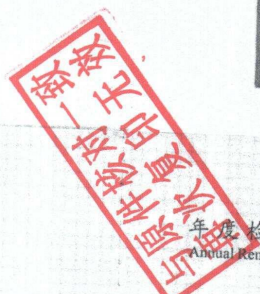 与原件核对一致
再次复印无效
年度检
Annual Ren